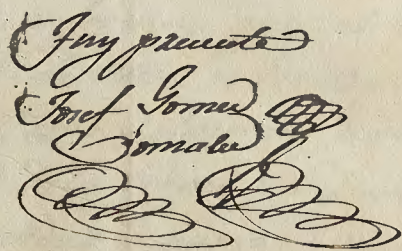 Fuy presente
Josef Gomez
Gonzalez